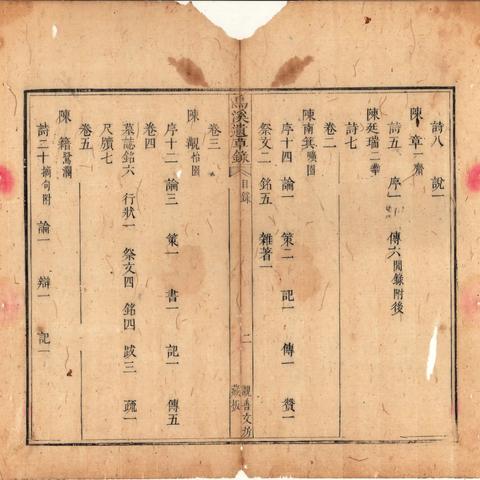 詩八 說一
陳 章一
詩五 序一 傳六 閒錄附後
陳廷瑞二華
詩七
卷二
陳南箕曠園
序十四 論一 策二 記一 傳一 贊一
祭文二 銘五 雜著一
溪遺草錄 目錄 二 文房 藏板
卷三
陳 觀怡園
序十二 論三 策一 書一 記一 傳五
卷四
墓誌銘六 行狀一 祭文四 銘四 跋三 疏一
尺牘七
卷五
陳 籍鷺瀾
詩二十摘句附 論一 辯一 記一